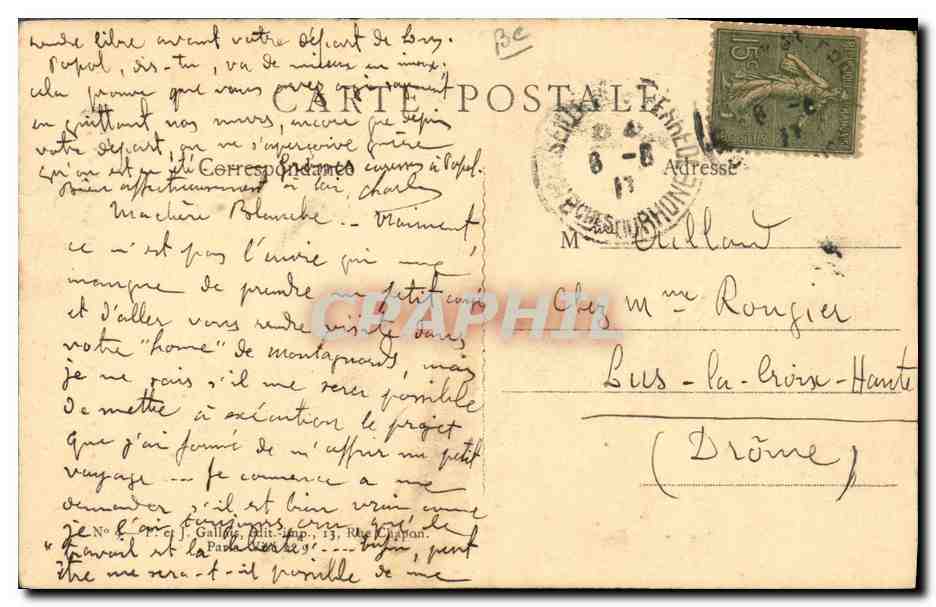 rendre libre avant votre départ de Lus.
Popol, dis-tu, va de mieux en mieux;
cela prouve que vous avez
en quittant nos murs, encore que depuis
votre départ, on ne s'aperçoive guère
qu'on est en été. caresses à Popol.
Bien affectueusement à toi, Charles
Bc
CARTE POSTALE
Correspondance
Adresse
Ma chère Blanche. - Vraiment,
ce n'est pas l'envie qui me
manque de prendre un petit congé
et d'aller vous rendre visite dans
votre "home" de montagnards, mais
je ne sais s'il me sera possible
de mettre à exécution le projet
que j'ai formé de m'offrir un petit
voyage ... Je commence à me
demander s'il est bien vrai comme
je l'ai toujours cru que "le
travail est la liberté" ..... Enfin, peut
être me sera-t-il possible de me
N° P. et J. Gallais, édit.-imp., 13, Rue Chapon.
Paris
15c
6 -8
17
BCHES DU RHONE
M
Chez Mme Rougier
Lus-la-Croix-Haute
(Drôme)
CPAPHIL